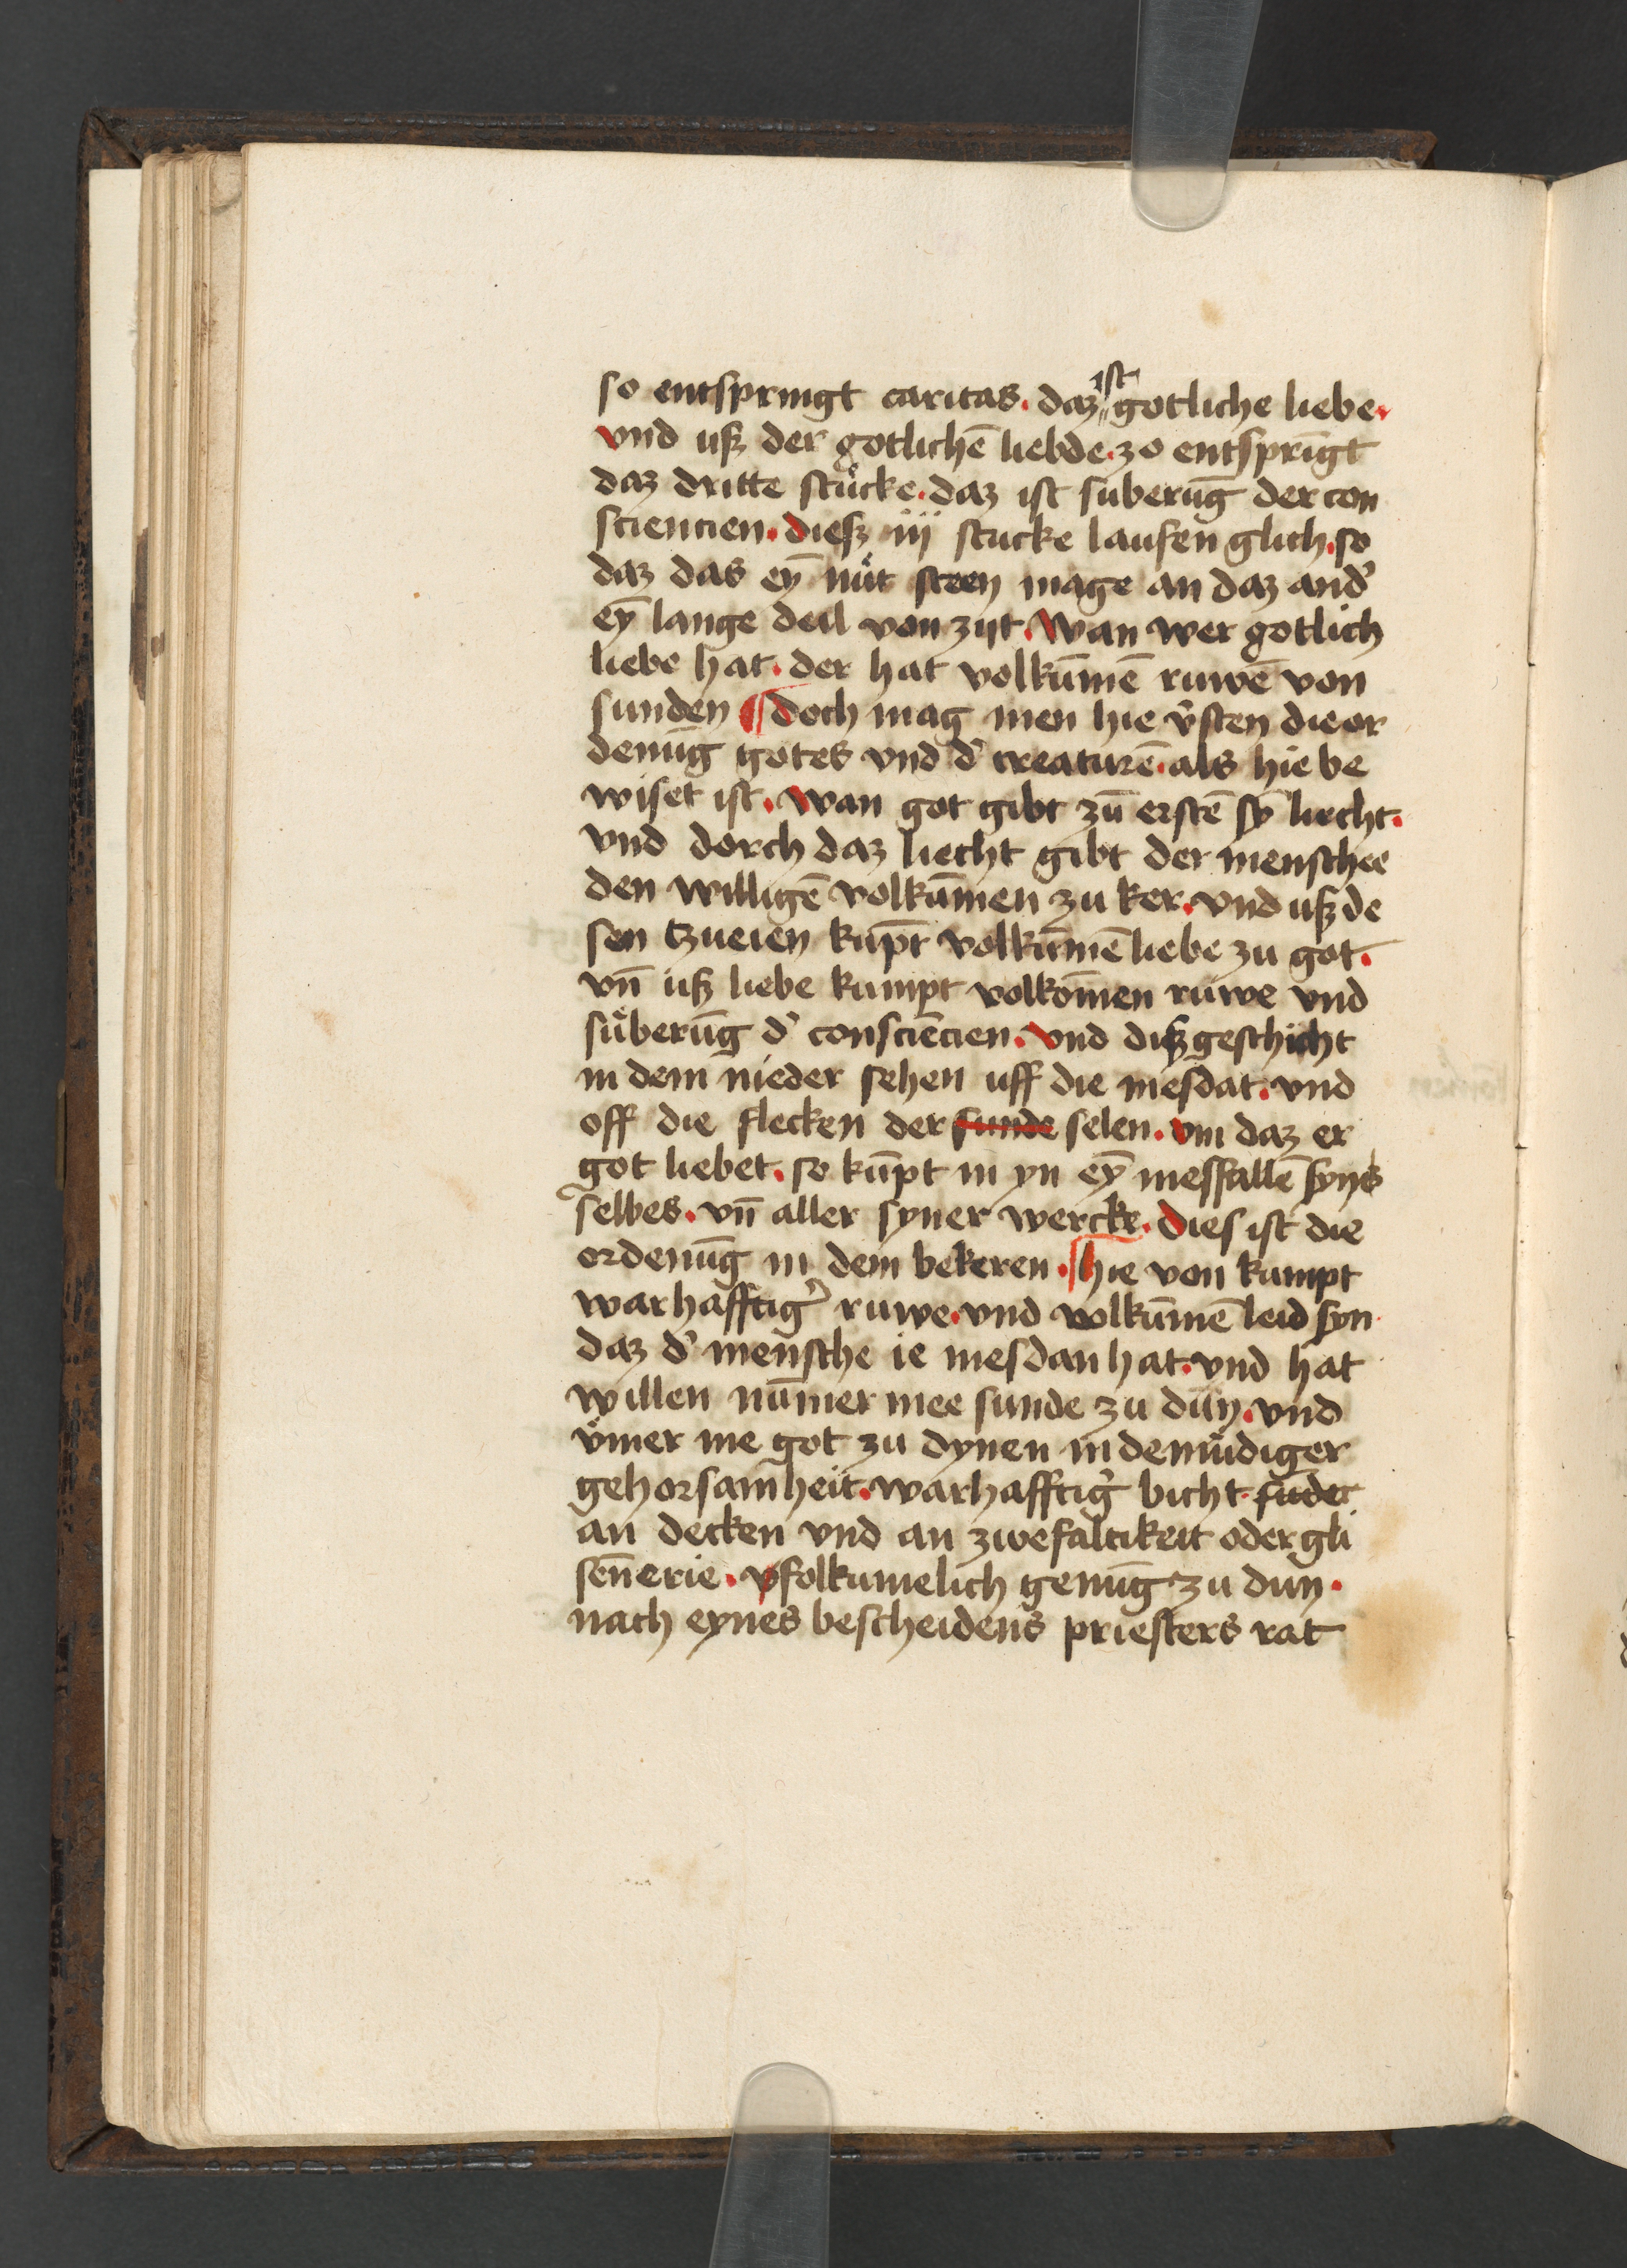 so entspringt caritas. daz ist gotliche liebe.
vnd uſz der gotlichē liebde. zo entsprīgt
daz dritte stücke. daz ist suberūg der con
sciencien. dieſz iij stucke laufen glich. so
daz das eȳ nüt steen mage an daz and͛
eȳ lange deil von zijt. Wan wer gotlich
liebe hat. der hat volkūmē ruwē von
sunden ¶ doch mag men hie v͛sten die or
denūg gotes vnd d͛ creaturē. als hie be
wiset ist. Wan got gibt zū erstē sȳ liecht.
vnd dorch daz liecht gibt der menschee
den willigē volkūmen zu ker. vnd uſz de
sen tzueien kūpt volkūmē liebe zu got.
vn̄ uſz liebe kumpt volkōmen ruwe vnd
süberūg d͛ consciēcien. vnd diſz geschicht
in dem nieder sehen uff die mesdat. vnd
off die flecken der sunde selen. vm daz er
got liebet. so kūpt in yn eȳ mesfallē syns
selbes. vn̄ aller syner wercke. Dies ist die
ordenūg in dem bekeren. ¶ hie von kumpt
warhafftig͛ ruwe. vnd volkūmē leid syn
daz d͛ mensche ie mesdan hat. vnd hat
willen nūmer mee sunde zu dün. vnd
ÿmer me got zu dynen in demüdiger
gehorsamheit. warhafftig͛ bicht.
an decken vnd an zwefaltikeit oder gli
sen̄erie. v̵folkumelich genūg zu dun.
nach eynes bescheidens priesters rat